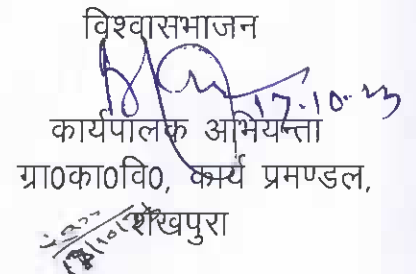 विश्वासभाजन
17.10.23
कार्यपालक अभियन्ता
ग्रा0का0वि0, कार्य प्रमण्डल,
शेखपुरा